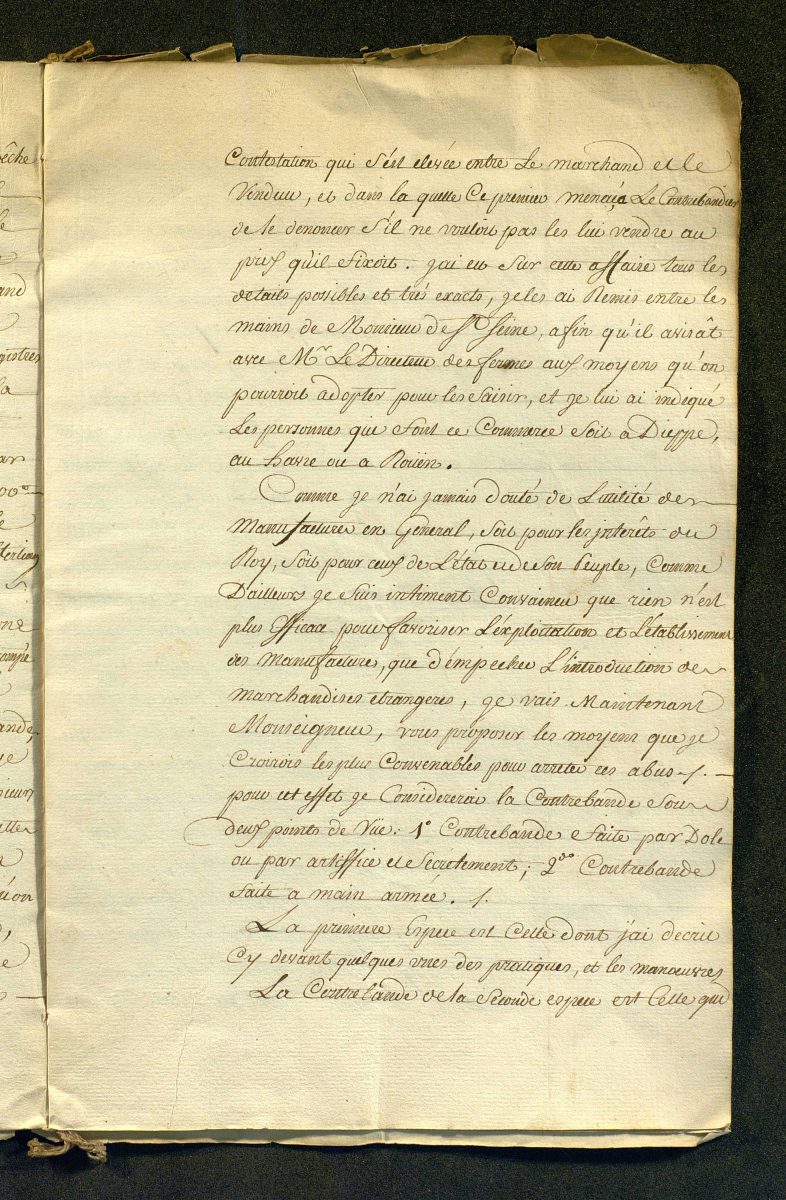 Contestation qui s'est elevée entre Le marchand et le
Vendeur, et dans la quelle Ce premier menaça Le Contrebandier
de le denoncer s'il ne vouloit pas les lui vendre au
prix qu'il fixoit. j'ai eu sur cette affaire tous les
details possibles et trés exacts, je les ai Remis entre les
mains de Monsieur de St Seine, afin qu'il avisât
avec Mr Le Directeur des fermes aux moyens qu'on
pourroit adopter pour les saisir, et je lui ai indiqué
Les personnes qui font ce Commerce soit a Dieppe,
au havre ou a Roüen.
Comme je n'ai jamais douté de L'utilité des
Manufactures en General, soit pour les interêts du
Roy, soit pour ceux de L'état et de son Peuple, comme
D'ailleurs je suis intiment Convaincu que rien n'est
plus Efficace pour favoriser L'exploitation et L'établissement
des Manufactures, que d'empecher L'introduction des
marchandises etrangeres, je vais Maintenant
Monseigneur, vous proposer les moyens que je
Croirois les plus Convenables pour arreter ces abus ./.
pour cet effet je Considererai la Contrebande sous
deux points de Vue: 1° Contrebande faite par Dole
ou par artiffice et Secretement; 2do Contrebande
faite a main armée. /.
La premiere Espece est Celle dont j'ai decrit
Cy devant quelques unes des pratiques, et les manœuvres
La Contrebande de la Seconde espece est Celle qui
êche
le
and
gistres
la
ar
00°
le
terling
one
compte
ande,
ue
sieur
atter
u'on